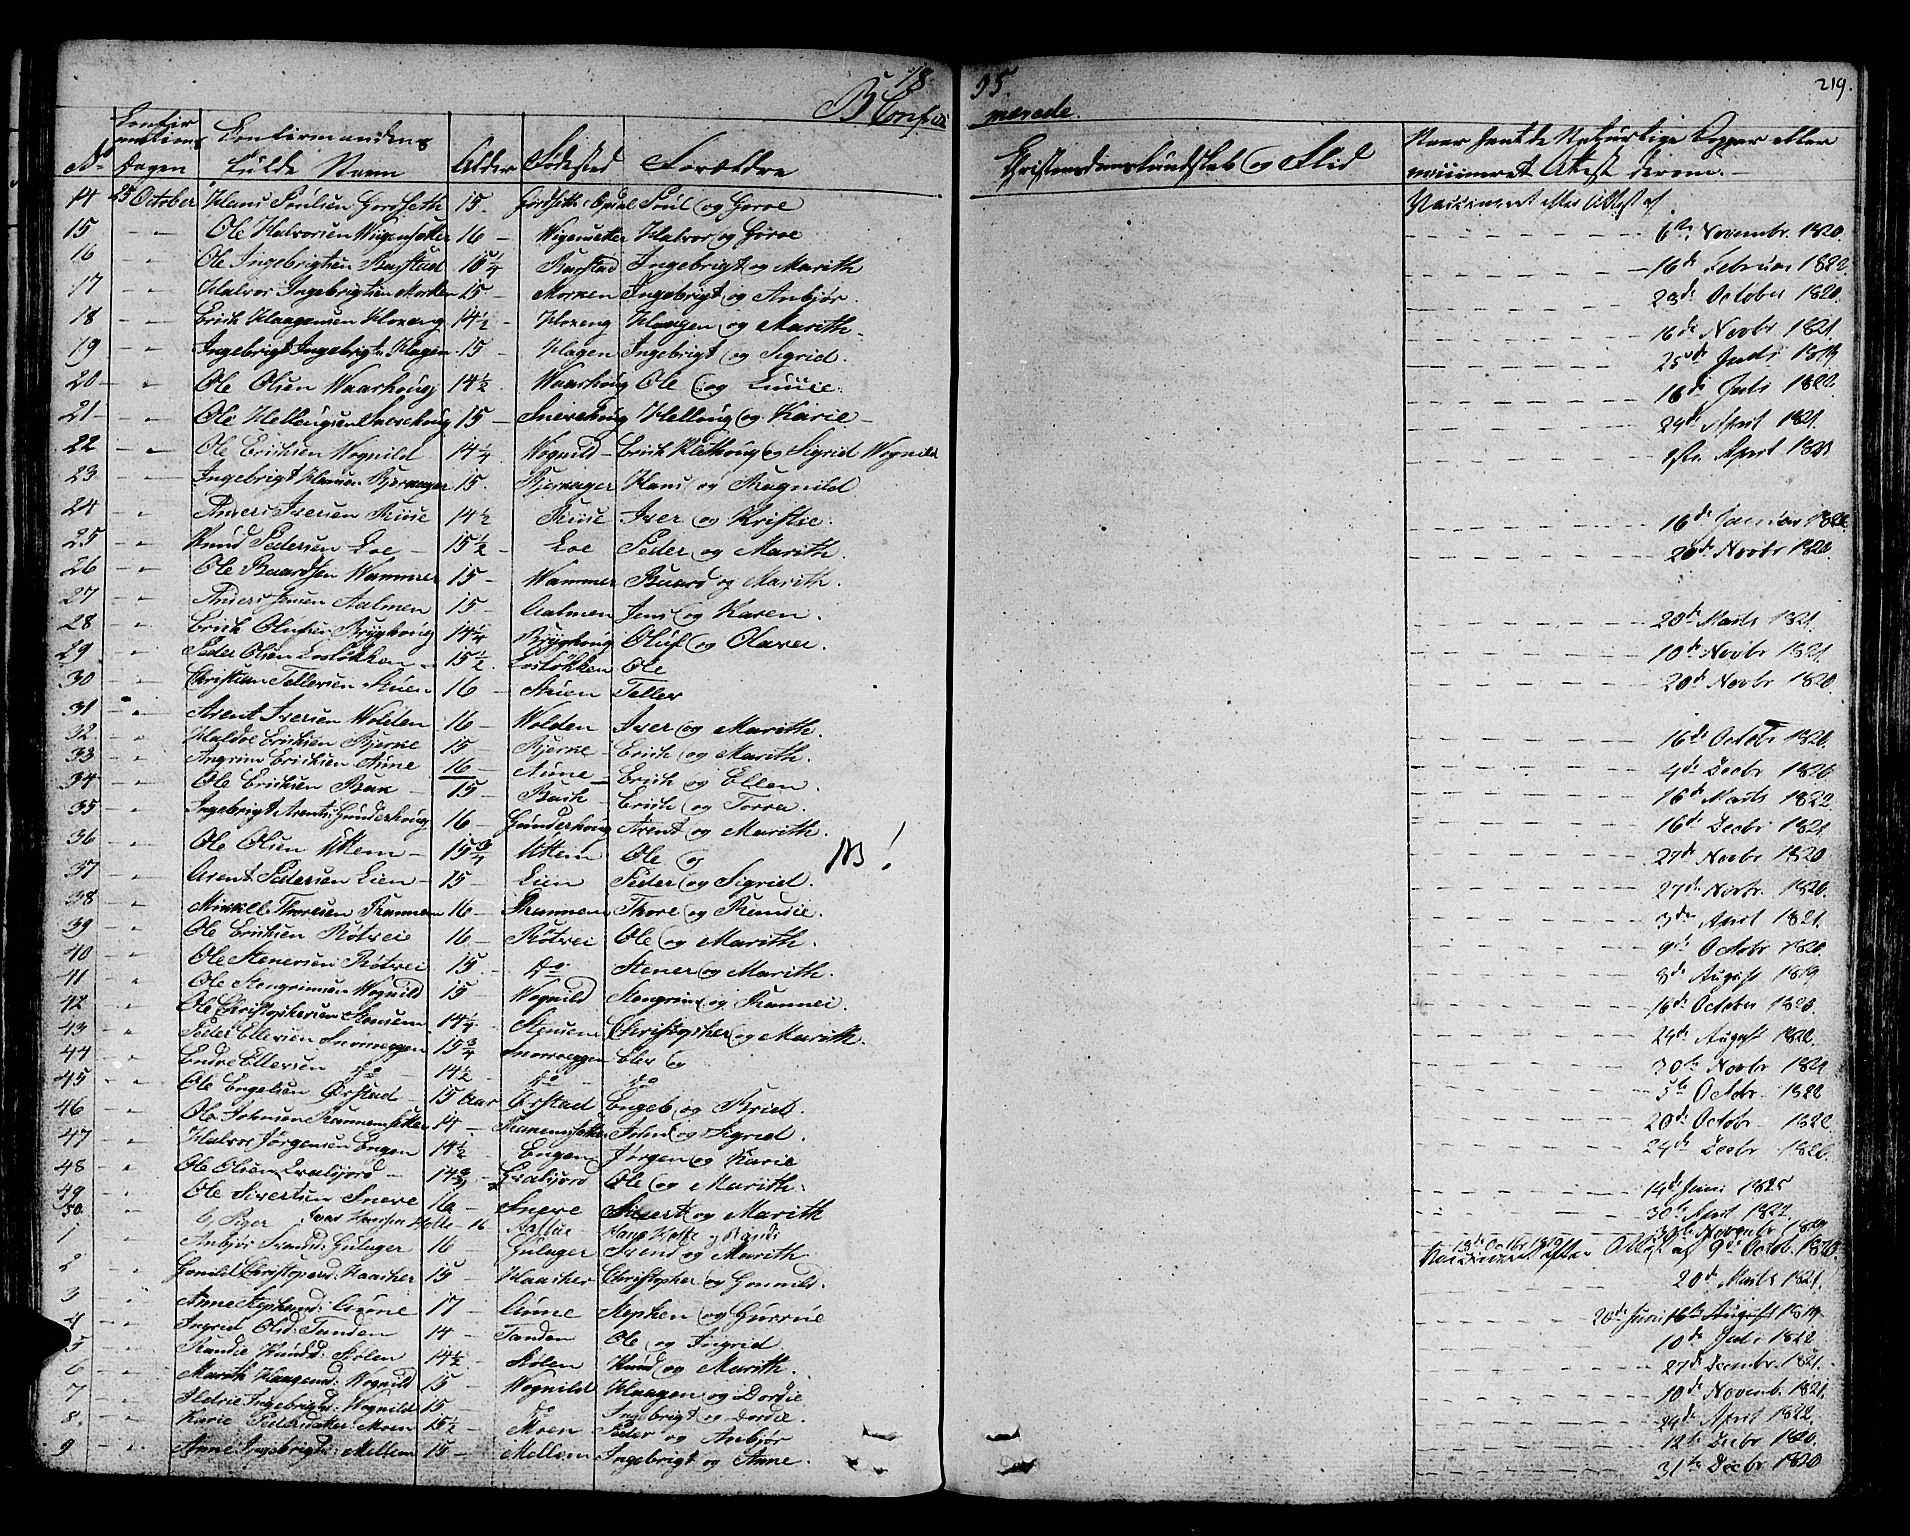 18 35. 219.
B Confir merede.
No Confirmations Dagen Confirmandens fulde Navn Alder Fødested Forældre Christendomskundskab og Flid Naar havte Naturlige Kopper eller vaccineret Attest derom.
14 25 October Hans Poulsen 15. Poul og Goroe Vaccineret efter Attest af
15 Ole Halvorsen Wigensetter 16 Wigensetter Halvor og Goroe 6te Novembr. 1820.
16 Ole Ingebrigtsen Barstad 15 1/4 Barstad Ingebrigt og Marith 16de Februar 1822.
17 Halvor Ingebrigtsen Morken 15 Morken Ingebrigt og Anbjør. 23de October 1820.
18 Erich Haagensen Hoxeng 14 1/2 Hoxeng Haagen og Marith. 16de Novbr 1821.
19 Ingebrigt Ingebrigts: Hagen 15 Hagen Ingebrigt og Sigrid. 25de Juli 1819
20 Ole Olsen Waarhoug 14 1/2 Waarhoug Ole og 16de Juli 1822.
21 Ole Hellingsen Snerehoug 15 Snerehoug Helling og Karie 24de April 1821.
22 Ole Erichsen Wognild 14 1/4 Wognild Erich Klethoug og Sigrid Wognild April
23 Ingebrigt Hansen Bjerkager 15. Bjerkager Hans og Ragnild
24 Anders Iversen Riise 14 1/2 Riise Iver og Kristie. 16de Januar 1822.
25 Knud Pedersen Loe 15 1/2 Loe Peder og Marith. 20de Novbr 1820.
26 Ole Baardsen Wammer 15 Wammer Baard og Marith.
27 Anders Jensen Aalmen 15 Aalmen Jens og Karen. 20de Marts 1821.
28 Erich Olufsen Bryghoug 14 1/4 Bryghoug Oluf og Olava. 10de Novbr 1821.
29 Peder Olsen Losløkken 15 1/2 Losløkken Ole 20de Novbr 1820.
30 Christian Tellersen Stuen 16 Stuen Teller
31 Arent Iversen Wolden 16 Wolden Iver og Marith. 16de Octobr 1820.
32 Haldoe Erichsen Bjerke 15 Bjerke Erich og Marith. 4de Decbr 1820
33 Angrim Erichsen Aune 16 Aune Erich og Ellen. 16de Marts 1822.
34 Ole Erichsen Bak 15 Bach Erich og Torra 16de Decbr 1821
35 Ingebrigt Arents: Gunderhoug 16 Gunderhoug Arent og Marith. 27de Novbr 1820
36 Ole Olsen Uttem 15 3/4 Uttem Ole og NB! 27de Novbr. 1820.
37 Arent Pedersen Lien 15 Lien Peder og Sigrid. 3de April 1821.
38 Mikkel Thoresen Rannem 16 Rannem Thore og Randie. 9de Octobr 1820.
39 Ole Erichsen Røtvei 16 Røtvei Ole og Marith. 8de August 1819
40 Ole Stenersen Røtvei 15. do Stener og Marith. 16de October 1820.
41 Ole Stengrimsen Wognild 15 Wognild Stengrim og Rannei 24de August 1822.
42 Ole Christophersen Stensem 14 1/4 Stensem Christopher og Marith. 20de Novbr 1821
43 Peder Ellersen Snoeveggen 15 3/4 Snoeveggen Eler og 5te Octobr. 1822
44 Endre Ellersen do 14 1/2 do do 20de Octobr 1822
45 Ole Engelsen Ørstad 15 Aar Ørstad Engeb og Brid. 24de Decbr 1820.
46 Ole Johnsen Rannemsetter 14 Rannemsetter John og Sigrid.
47 Halvor Jørgensen Engen 14 1/2 Engen Jørgen og Karie
48 Ole Olsen 14 3/4 Ole og Marith. 14de Juni 1825
49 Ole Sivertsen Sneve 16 Sneve Sivert og Marith 30te April 1822.
50. Hansen Holte 16 Hans Holte og Novembr. 1819
b, Piger
1 Anbjør Svends: Gulager 16 Gulager Svend og Marith Vaccineret efter Attest af 9de Octob. 1820.
2 Gonild Christophersd: Haacker 15 Haacker Christopher og Gonnild. 20de Marts 1821.
3 Anne Stephensd: Aune 17 Aune Stephen og Gurrue 20de Juni 16de August 1819
4 Ingrid Olsd: Tanden 14 Tanden Ole og Ingrid 10de Juli 1822
5 Randie Knudsd: Stølen 14 1/2 Stølen Knud og Marith. 27de Decmbr. 1821.
6 Marith Haagensd: Wognild 15 Wognild Haagen og Dordie 10de Novemb. 1821.
7 Ingebrigtsd: Wognild 15 do Ingebrigt og Dordie. 24de April 1822.
8. Karie Pedersdatter Moen 15 1/2 Moen Peder og Anbjør 12te Decbr 1820.
9 Anne Ingebrigtsd: Mellem 15 Mellem Ingebrigt og Anne. 31te Decbr 1820